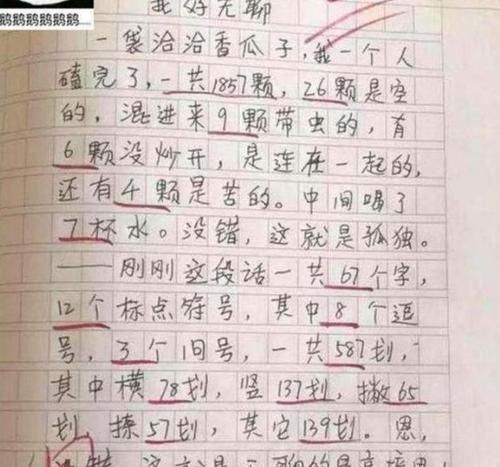 鹅鹅鹅鹅鹅鹅......
我好无聊
一袋洽洽香瓜子,我一个人
磕完了,一共1857颗,26颗是空
的,混进来9颗带虫的,有
6颗没炒开,是连在一起的,
还有4颗是苦的。中间喝了
7杯水。没错,这就是孤独。
——刚刚这段话一共67个字,
12个标点符号,其中8个逗
号,3个句号,一共587划,
其中横78划,竖137划,撇65
划,捺57划,其它139划。恩,